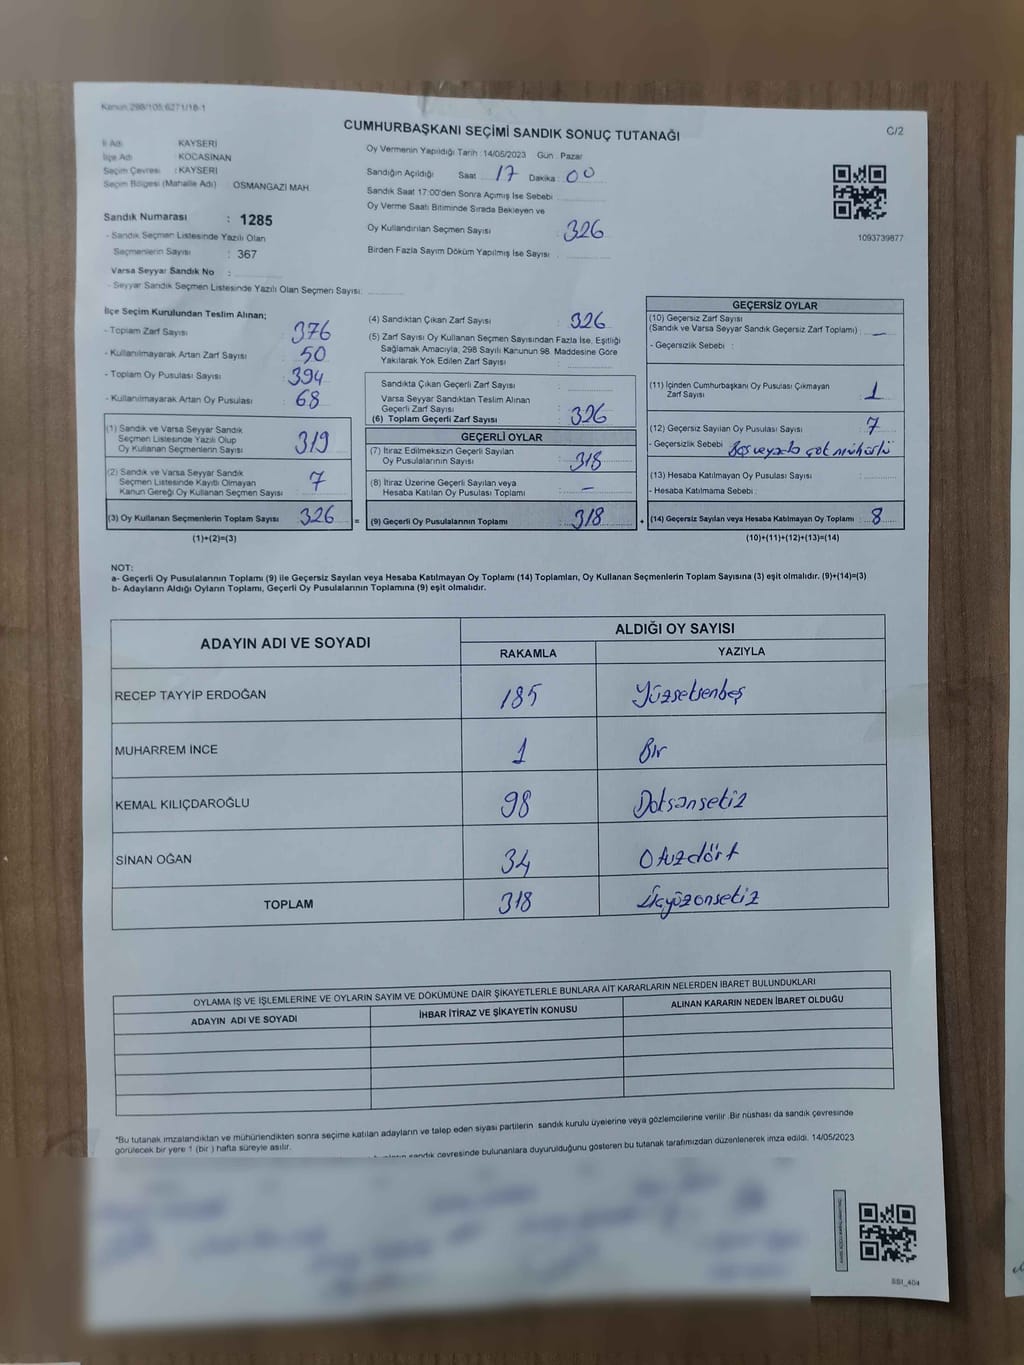 Kanun:298/105;6271/16-1
CUMHURBAŞKANI SEÇİMİ SANDIK SONUÇ TUTANAĞI
C/2
İl Adı KAYSERİ
İlçe Adı KOCASİNAN
Seçim Çevresi : KAYSERİ
Seçim Bölgesi (Mahalle Adı) OSMANGAZİ MAH.
Sandık Numarası : 1285
- Sandık Seçmen Listesinde Yazılı Olan
Seçmenlerin Sayısı : 367
Varsa Seyyar Sandık No :
- Seyyar Sandık Seçmen Listesinde Yazılı Olan Seçmen Sayısı:
Oy Vermenin Yapıldığı Tarih :14/05/2023 Gün : Pazar
Sandığın Açıldığı Saat 17 Dakika 00
Sandık Saat 17:00'den Sonra Açımış İse Sebebi
Oy Verme Saati Bitiminde Sırada Bekleyen ve
Oy Kullandırılan Seçmen Sayısı 326
Birden Fazla Sayım Döküm Yapılmış İse Sayısı :
1093739877
İlçe Seçim Kurulundan Teslim Alınan;
- Toplam Zarf Sayısı : 376
- Kullanılmayarak Artan Zarf Sayısı : 50
- Toplam Oy Pusulası Sayısı : 394
- Kullanılmayarak Artan Oy Pusulası : 68
(1) Sandık ve Varsa Seyyar Sandık
Seçmen Listesinde Yazılı Olup
Oy Kullanan Seçmenlerin Sayısı 319
(2) Sandık ve Varsa Seyyar Sandık
Seçmen Listesinde Kayıtlı Olmayan
Kanun Gereği Oy Kullanan Seçmen Sayısı 7
(3) Oy Kullanan Seçmenlerin Toplam Sayısı 326
(1)+(2)=(3)
=
(4) Sandıktan Çıkan Zarf Sayısı : 326
(5) Zarf Sayısı Oy Kullanan Seçmen Sayısından Fazla İse, Eşitliği
Sağlamak Amacıyla, 298 Sayılı Kanunun 98. Maddesine Göre
Yakılarak Yok Edilen Zarf Sayısı :
Sandıkta Çıkan Geçerli Zarf Sayısı :
Varsa Seyyar Sandıktan Teslim Alınan
Geçerli Zarf Sayısı :
(6) Toplam Geçerli Zarf Sayısı : 326
GEÇERLİ OYLAR
(7) İtiraz Edilmeksizin Geçerli Sayılan
Oy Pusulalarının Sayısı : 318
(8) İtiraz Üzerine Geçerli Sayılan veya
Hesaba Katılan Oy Pusulası Toplamı : –
(9) Geçerli Oy Pusulalarının Toplamı : 318
+
GEÇERSİZ OYLAR
(10) Geçersiz Zarf Sayısı
(Sandık ve Varsa Seyyar Sandık Geçersiz Zarf Toplamı) : –
- Geçersizlik Sebebi :
(11) İçinden Cumhurbaşkanı Oy Pusulası Çıkmayan
Zarf Sayısı : 1
(12) Geçersiz Sayılan Oy Pusulası Sayısı : 7
- Geçersizlik Sebebi : Boş veyada çok mühürlü
(13) Hesaba Katılmayan Oy Pusulası Sayısı :
- Hesaba Katılmama Sebebi :
(14) Geçersiz Sayılan veya Hesaba Katılmayan Oy Toplamı : 8
(10)+(11)+(12)+(13)=(14)
NOT:
a- Geçerli Oy Pusulalarının Toplamı (9) ile Geçersiz Sayılan veya Hesaba Katılmayan Oy Toplamı (14) Toplamları, Oy Kullanan Seçmenlerin Toplam Sayısına (3) eşit olmalıdır. (9)+(14)=(3)
b- Adayların Aldığı Oyların Toplamı, Geçerli Oy Pusulalarının Toplamına (9) eşit olmalıdır.
ADAYIN ADI VE SOYADI ALDIĞI OY SAYISI
RAKAMLA YAZIYLA
RECEP TAYYİP ERDOĞAN 185 Yüzseksenbeş
MUHARREM İNCE 1 Bir
KEMAL KILIÇDAROĞLU 98 Doksansekiz
SİNAN OĞAN 34 Otuzdört
TOPLAM 318 Üçyüzonsekiz
OYLAMA İŞ VE İŞLEMLERİNE VE OYLARIN SAYIM VE DÖKÜMÜNE DAİR ŞİKAYETLERLE BUNLARA AİT KARARLARIN NELERDEN İBARET BULUNDUKLARI
ADAYIN ADI VE SOYADI İHBAR İTİRAZ VE ŞİKAYETİN KONUSU ALINAN KARARIN NEDEN İBARET OLDUĞU
*Bu tutanak imzalandıktan ve mühürlendikten sonra seçime katılan adayların ve talep eden siyasi partilerin sandık kurulu üyelerine veya gözlemcilerine verilir .Bir nüshası da sandık çevresinde
görülecek bir yere 1 (bir ) hafta süreyle asılır.
sandık çevresinde bulunanlara duyurulduğunu gösteren bu tutanak tarafımızdan düzenlenerek imza edildi. 14/05/2023
SSI_404